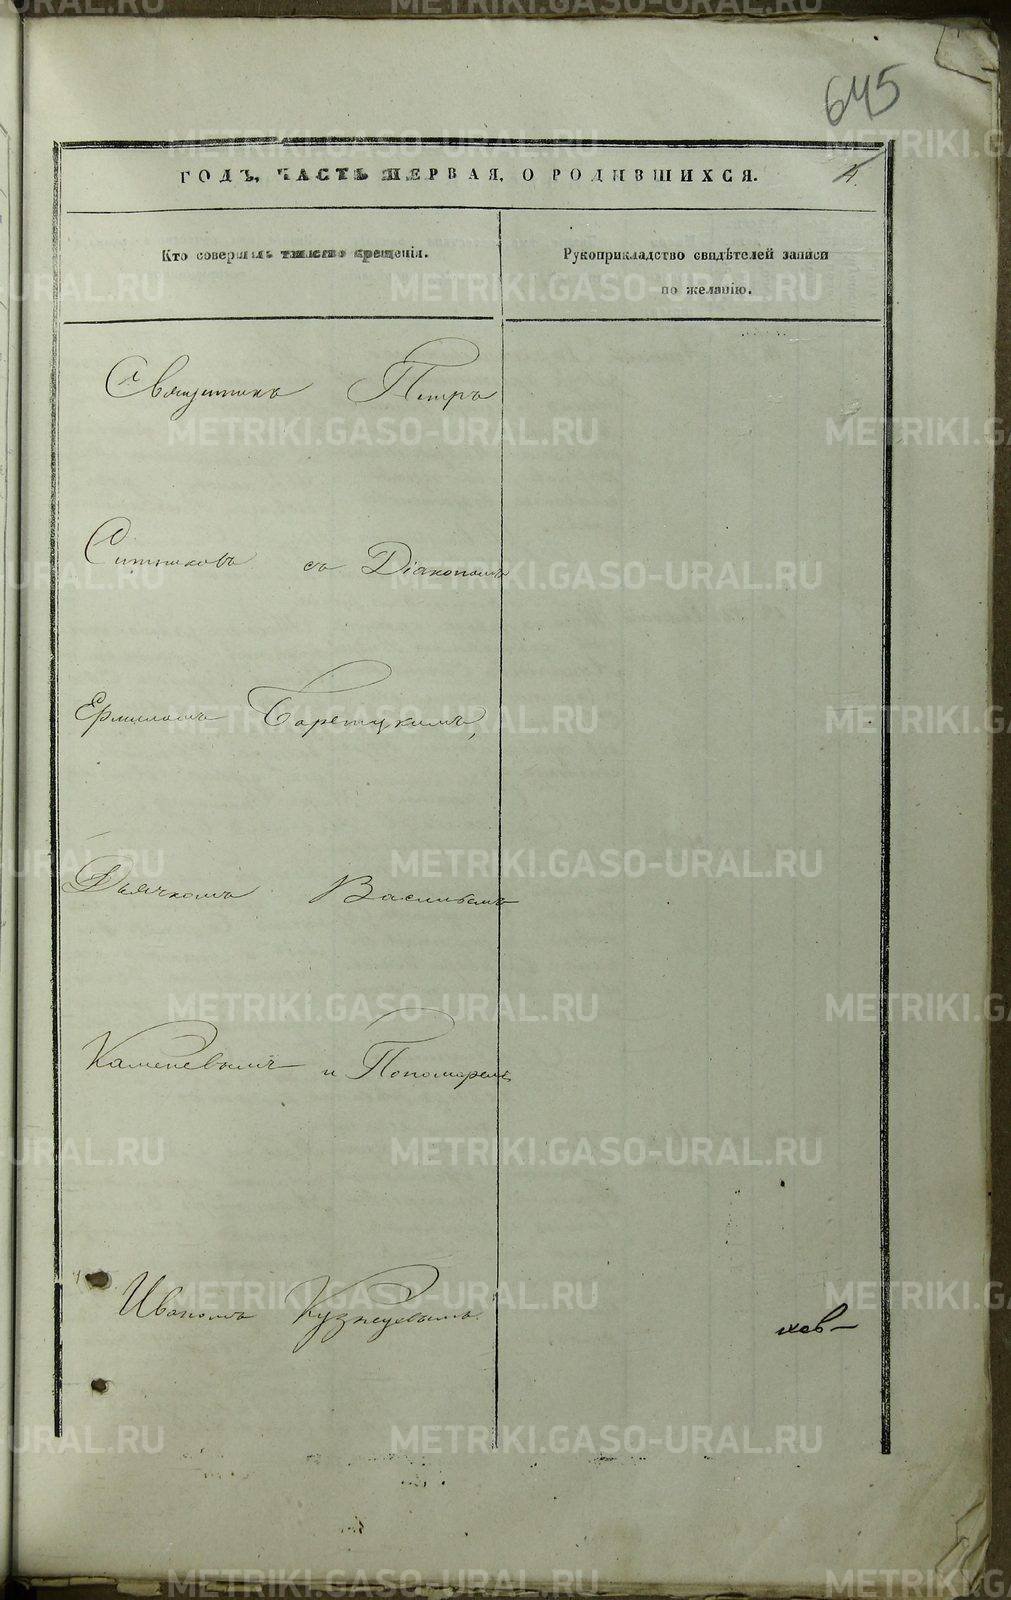 645
ГОДЪ, ЧАСТЬ ПЕРВАЯ, О РОДИВШИХСЯ.
4.
Кто совершалъ таинство крещенія.
Рукоприкладство свидѣтелей записи
по желанію.
Священникъ Петръ
Ситниковъ съ Діакономъ
Ермиломъ Боретцкимъ,
Дьячкомъ Васильемъ
Каменевымъ и Пономаремъ
Иваномъ Кузнецовымъ.
METRIKI.GASO-URAL.RU